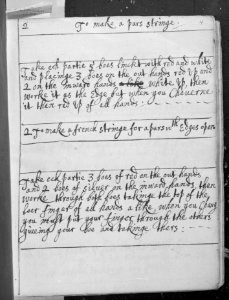 2 To make a purs stringe.
Take eck partie 5 boes linckt with red and white
and placinge 3 boes on the out hands red up and
2 on the inward hands white up then
worke it as the Edge but when you
it then red up of all hands :
2 To make a french stringe for a purs wth Edges open
Take eck partie 3 boes of red on the out hands
and 2 boes of silver on the inward hands then
worke through both boes takinge the top of the
loer fingers of all hands a like, when you Chang
you must put your finger through the others
giveing your boe and takinge theirs :